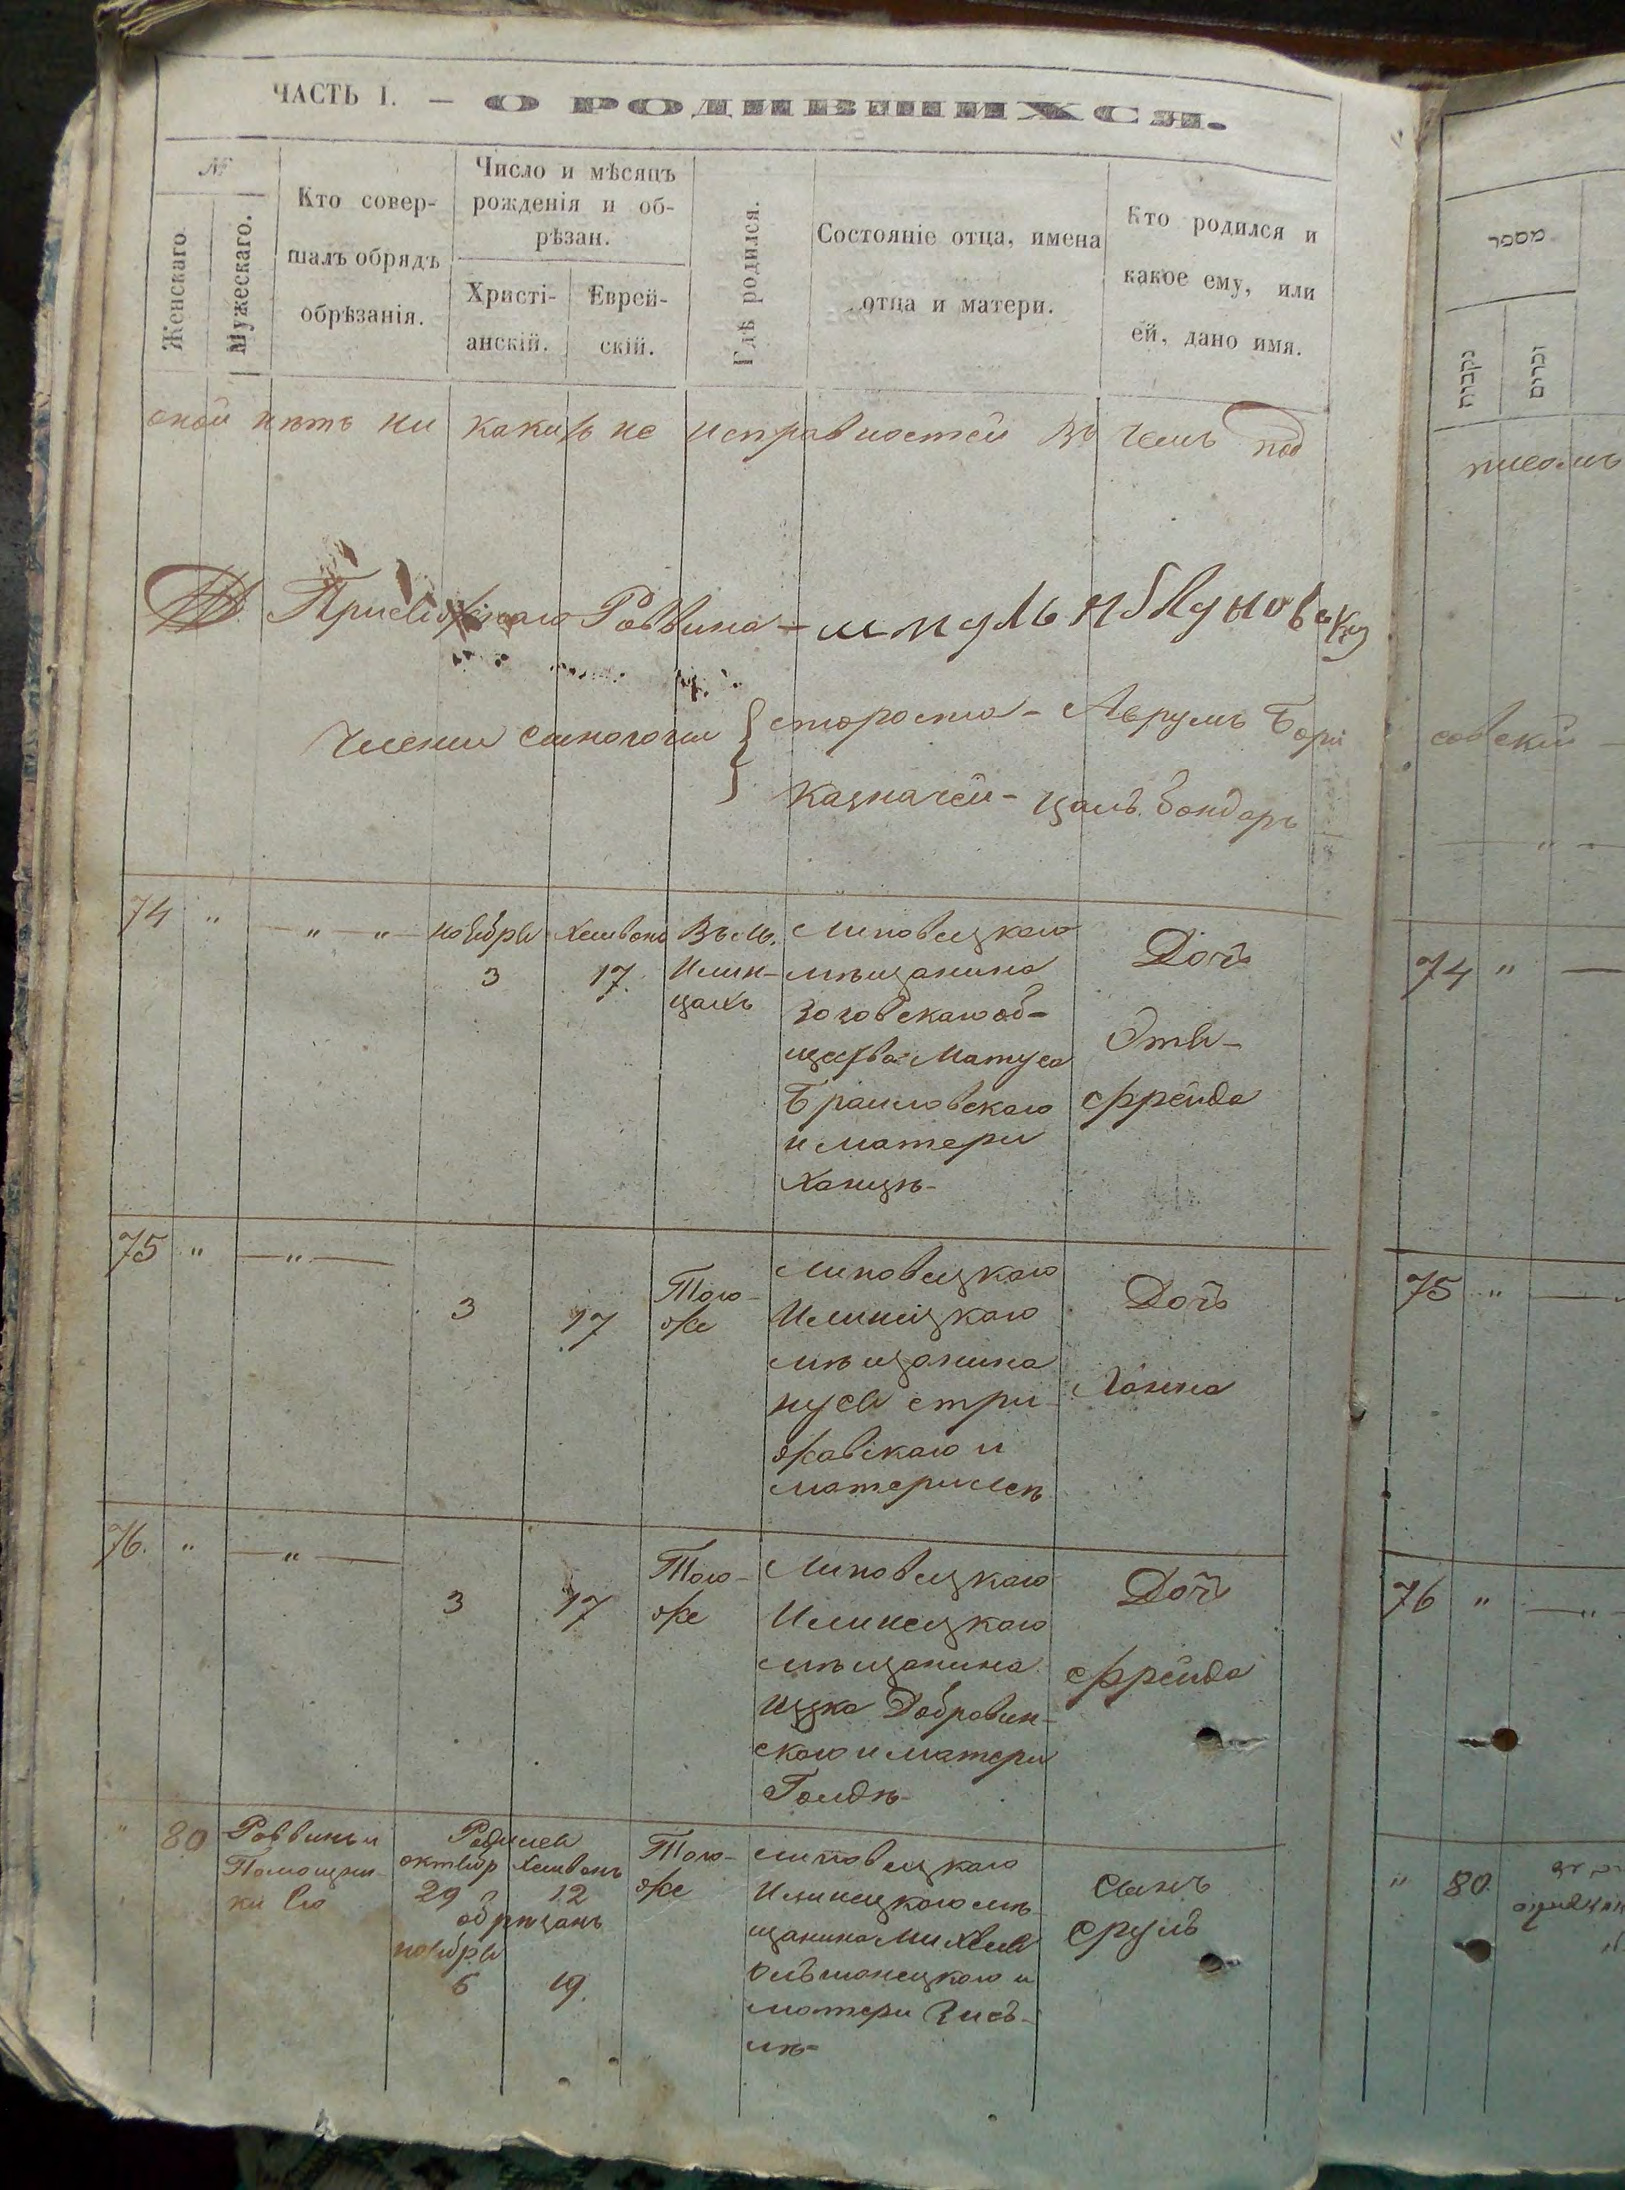 ЧАСТЬ I. — О РОДИВШИХСЯ.
№
Женскаго.
Мужескаго.
Кто совер-
шалъ обрядъ
обрѣзанія.
Число и мѣсяцъ
рожденія и об-
рѣзан.
Христі-
анскій.
Еврей-
скій.
Гдѣ родился.
Состояніе отца, имена
отца и матери.
Кто родился и
какое ему, или
ей, дано имя.
оной нѣтъ ни какихъ не исправностей въ чемъ под
Раввина – шмуль
члени синогоги } староста – Аврумъ Бори
казначей – цаль бондарь
74 " — " — " —
ноября
3
Хешвонъ
17.
Въ м.
Илин-
цахъ
Липовецкаго
мѣщанина
зозовскаго об-
щества Матуса
Браиловскаго
и матери
Ханцѣ-
Дочь
Этя-
фрейда
75 " — " —
3
17
Того-
же
Липовецкаго
Илинецкаго
мѣщанина
нуся стри
жавскаго и
матери
Дочь
Ханна
76. " — " —
3
17
Того-
же
Липовецкаго
Илинецкаго
мѣщанина
ицка Добровин-
скаго и матери
Голдѣ-
Дочь
фрейда
" 80
Раввинъ и
Помощни-
ки Его
Родился
октября Хешвонъ
29 12
обрѣзанъ
ноября
5 19.
Того-
же
липовецкаго
Илинецкаго мѣ
щанина Михеля
Ольшанецкаго и
матери Зисъ-
лѣ-
Сынъ
Сруль
מספר
נקבות
זכרים
писомъ
совскій —
74 " —
75 " —
76 " — " —
" 80.